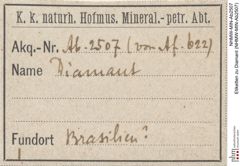 K. k. naturh. Hofmus. Mineral.-petr. Abt.
Akq.-Nr. Ab. 2507 (von Af. 622)
Name Diamant
Fundort Brasilien?
NHMW-MIN-Ab2507
Etiketten zu Diamant (NHMW-MIN-Ab2507)